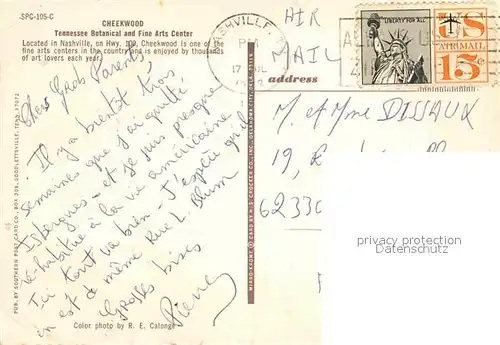 -SPC-105-C
CHEEKWOOD
Tennessee Botanical and Fine Arts Center
Located in Nashville, on Hwy. 100, Cheekwood is one of the
fine arts centers in the country and is enjoyed by thousands
of art lovers each year.
Chers Grds Parents,
Il y a bientôt trois
semaines que j'ai quitté
Isbergues - et je suis presque
ré-habitué à la vie américaine
Ici tout va bien - J'espère qu'il
en est de même Rue L. Blum
Grosses bises
Pierre
Color photo by R. E. Calonge
PUB. BY SOUTHERN POST CARD CO., BOX 309, GOODLETTSVILLE, TENN. 37072
NASHVILLE,
PM
17
AIR
MAIL
address
LIBERTY FOR ALL
US
AIRMAIL
15c
M. et Mme DISSAUX
19,
62330
privacy protection
oldthing.de